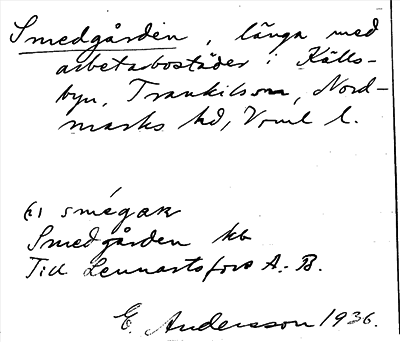 Smedgården, länga med
arbetarbostäder i Källs-
byn, Trankilsom, Nord-
marks hd, Vrml l.
smégaŋ
Smedgården kb
Till Lennartsfors A.-B.
E. Andersson 1936.